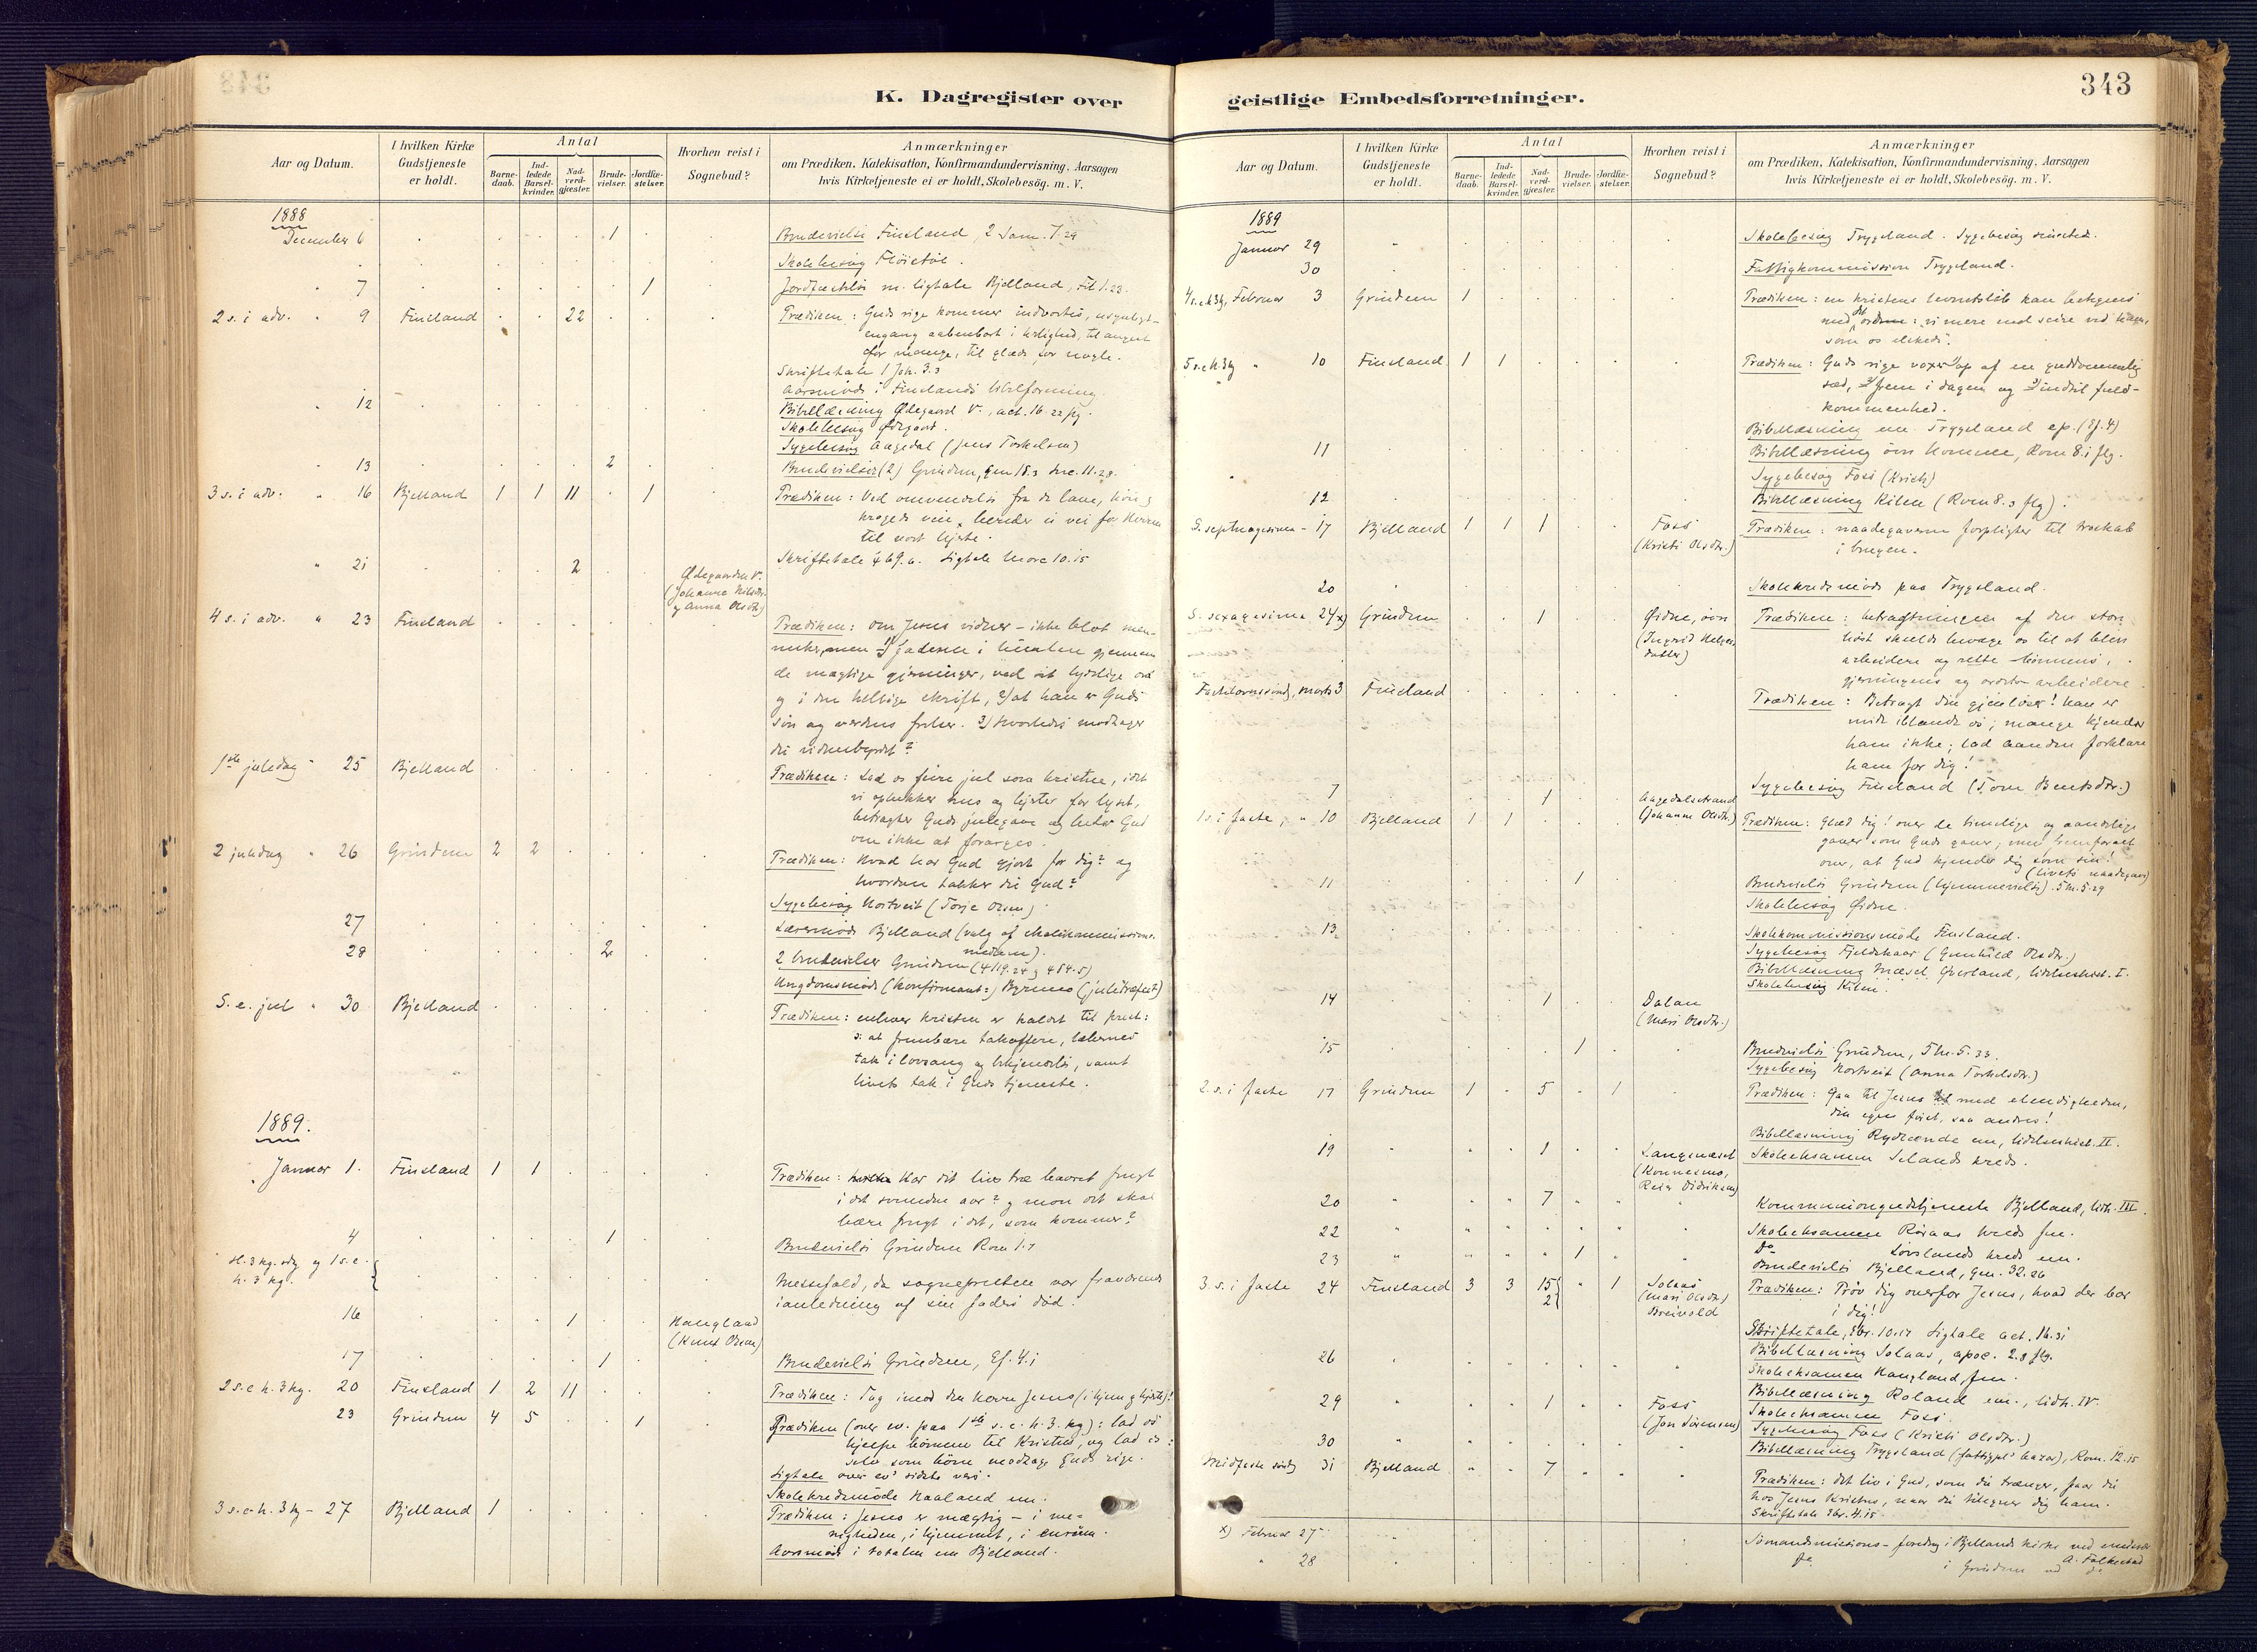 343
K. Dagregister over
Aar og Datum.
I hvilken Kirke Gudstjeneste er holdt.
Antal
Barnedaab.
Indledede Barselkvinder.
Nadverdgjæster.
Brudevielser.
Jordfæstelser.
Hvorhen reist i Sognebud?
Anmærkninger
om Prædiken, Katekisation, Konfirmandundervisning, Aarsagen
hvis Kirketjeneste ei er holdt, Skolebesøg. m. V.
1888
December 6 1 Brudevielse Finsland, 2 Sam. 7.29
Skolebesøg
7 1 Jordfæstelse m. ligtale Bjelland, Fil. 1.23.
2 s. i adv. " 9 Finsland 22 Prædiken: Guds rige kommer indvortes, usynligt –
engang aabenbart i herlighed, til angest
for mange, til glæde for nogle.
Skriftetale 1 Joh. 3.3
Aarsmøde i Finslands bibelforening.
" 12 Bibellæsning Ødegaard V., act. 16.22 flg.
Skolebesøg Ødegaard.
Sygebesøg Aagedal (Jens Torkelsen)
" 13 2 Brudevielser (2) Grindum, Gen 18.3 Luc. 11.28.
3 s. i adv. " 16 Bjelland 1 1 11 1 Prædiken: Ved omvendelse fra de lave,
krogede veie bereder vi vei for Herren
til vort hjerte.
Skriftetale Ligtale Marc 10.15
" 21 2 Ødegaarden V.
(Johanne Nilsdtr.
og Anna Olsdtr.)
4 s. i adv. " 23 Finsland
Prædiken: om Jesus vidner – ikke blot men-
nesker, men 1) faderen i himlen gjennem
de mægtige gjerninger, ved sit lydelige ord
og i den hellige skrift, 2) at han er Guds
søn og verdens frelser. 3) Hvorledes modtager
du vidnesbyrdet?
1ste juledag " 25 Bjelland
Prædiken: Lad os feire jul som kristne, idet
vi oplukker hus og hjerter for lyset,
betragter Guds julegave og beder Gud
om ikke at forarges.
2 juledag " 26 Grindum 2 2
Prædiken: Hvad har Gud gjort for dig? og
hvordan takker du Gud?
Sygebesøg Hortveit (Torje Olsen)
27 Lærermøde Bjelland (valg af skolekommissions-
medlem).
28 2 2 brudevielser Grindum
Ungdomsmøde
S. e. jul " 30 Bjelland
Prædiken: enhver kristen er kaldet til prest:
ɔ: at frembære takoffere, læbernes
tak i lovsang og bekjendelse, samt
livets tak i Guds tjeneste.
1889.
Januar 1. Finsland 1 1
Prædiken: Har dit livs træ baaret frugt
i det svundne aar? og mon det skal
bære frugt i det, som kommer?
4 1 Brudevielse Grindum Rom 1.7
H. 3 kg. sdg og 1 s. e.
h. 3 kg. }
Messefald, da sognepresten var fraværende
i anledning af sin faders død.
16 1 Haugland
(Knut Olsen)
17 1 Brudevielse Grindum, Ef. 4.1
2 s. e h. 3 kg. 20 Finsland 1 2 11 Prædiken: Tag imod den Herre Jesus (i hjem og hjerte)!
23 Grindum 4 5 1 Prædiken (over ev. paa 1ste s. e. h. 3. kg): lad os
hjelpe børnene til Kristus, og lad os
selv som børn modtage Guds rige.
Ligtale over ev's sidste vers.
Skolekredsmøde Haaland em.
3 s. e h. 3 kg – 27 Bjelland 1 Prædiken: Jesus er mægtig – i me-
nigheden, i hjemmet, i enrum.
Aarsmøde i totalen em Bjelland.
343
geistlige Embedsforretninger.
Aar og Datum.
I hvilken Kirke Gudstjeneste er holdt.
Antal
Barnedaab.
Indledede Barselkvinder.
Nadverdgjæster.
Brudevielser.
Jordfæstelser.
Hvorhen reist i Sognebud?
Anmærkninger
om Prædiken, Katekisation, Konfirmandundervisning, Aarsagen
hvis Kirketjeneste ei er holdt, Skolebesøg. m. V.
1889
Januar 29 Skolebesøg Trygsland. Sygebesøg
30 Fattigkommission Trygsland.
4 s. e. h. 3 kg, Februar 3 Grindum 1 Prædiken: en kristens levnetsløb kan betegnes
med ordene: vi mere end seire ved ham,
som os elskede.
5 s. e h. 3 kg " 10 Finsland 1 1 Prædiken: Guds rige voxer op af en guddommelig
sæd, 2) frem i dagen og 3) indtil fuld-
kommenhed.
Bibellæsning em. Trygsland
11 Bibellæsning Rom 8.1 flg.
Sygebesøg Foss
12 Bibellæsning Kilen (Rom 8.3 flg).
S. septuagesima – 17 Bjelland 1 1 1 Foss
(Kristi Olsdtr.)
Prædiken: naadegaverne forpligter til troskab
i brugen.
20 Skolekredsmøde paa Trygsland.
S. sexagesima 24 x) Grindum 1 Øidne, øvre
(Ingrid Helges
datter)
Prædiken: betragtningen af den store
høst skulde bevæge os til at blive
arbeidere og rette bønnens,
gjerningens og ordets arbeidere.
Fastelavnssøndg, marts 3 Finsland
Prædiken: Betragt din gjenløser! han er
midt iblandt os; mange kjender
ham ikke; lad aanden forklare
ham for dig!
7 1 Aagedalstrand
(Johanne Olsdtr.)
Sygebesøg Finsland (Tone Bentsdtr.)
1 s. i faste, " 10 Bjelland 1 1
Prædiken: Glæd dig! over de timelige og aandelige
gaver som Guds gaver, men fremforalt
over, at Gud kjender dig som sin!
(livets naadegave)
11 1 Brudevielse Grindum (hjemmevielse).
Skolebesøg Øidne.
13 Skolekommissionsmøde Finsland.
Sygebesøg Fjeldskaar (Gunhild Olsdtr.)
Bibellæsning Mæsel, Øverland, lidelseshist. I.
Skolebesøg Kilen.
14 1 Dalan
(Mari Olsdtr.)
15 1 Brudevielse Grindum
Sygebesøg Hortveit (Anna Torkelsdtr.)
2. s. i faste 17 Grindum 1 5 1 Prædiken: Gaa til Jesus med elendigheden,
din egen først, saa andres!
Bibellæsning em, lidelseshist. II.
19 1 Skoleeksamen kreds.
20 7 Kommuniongudstjeneste Bjelland, lidh. III.
22 Skoleeksamen kreds fm.
23 1 Do kreds em.
Brudevielse Bjelland, Gen. 32.26
3. s. i faste 24 Finsland 3 3 15 } 2 1 Solaas
(Mari Olsdtr.)
Breivold
Prædiken: Prøv dig overfor Jesus, hvad der bor
i dig!
Skriftetale, Ebr. 10.19 Ligtale act. 16.31
26 Bibellæsning Solaas, apoc. 2.8 flg.
Skoleeksamen Haugland, fm.
29 1 Foss
(Jon Sørensen)
Bibellæsning Roland em., lidh. IV.
Skoleeksamen Foss.
Sygebesøg Foss (Kristi Olsdtr.)
30 Bibellæsning Trygsland, Rom. 12.15
Midfaste søndg 31 Bjelland 7
Prædiken: det liv i Gud, som du trænger, faar du
hos Jesus Kristus, naar du tilegner dig ham.
Skriftetale Ebr. 4.15
x) Februar 27 Sømandsmissions-foredrag i Bjellands kirke ved
A. Falkestad
" 28 Do i Grindum ved do